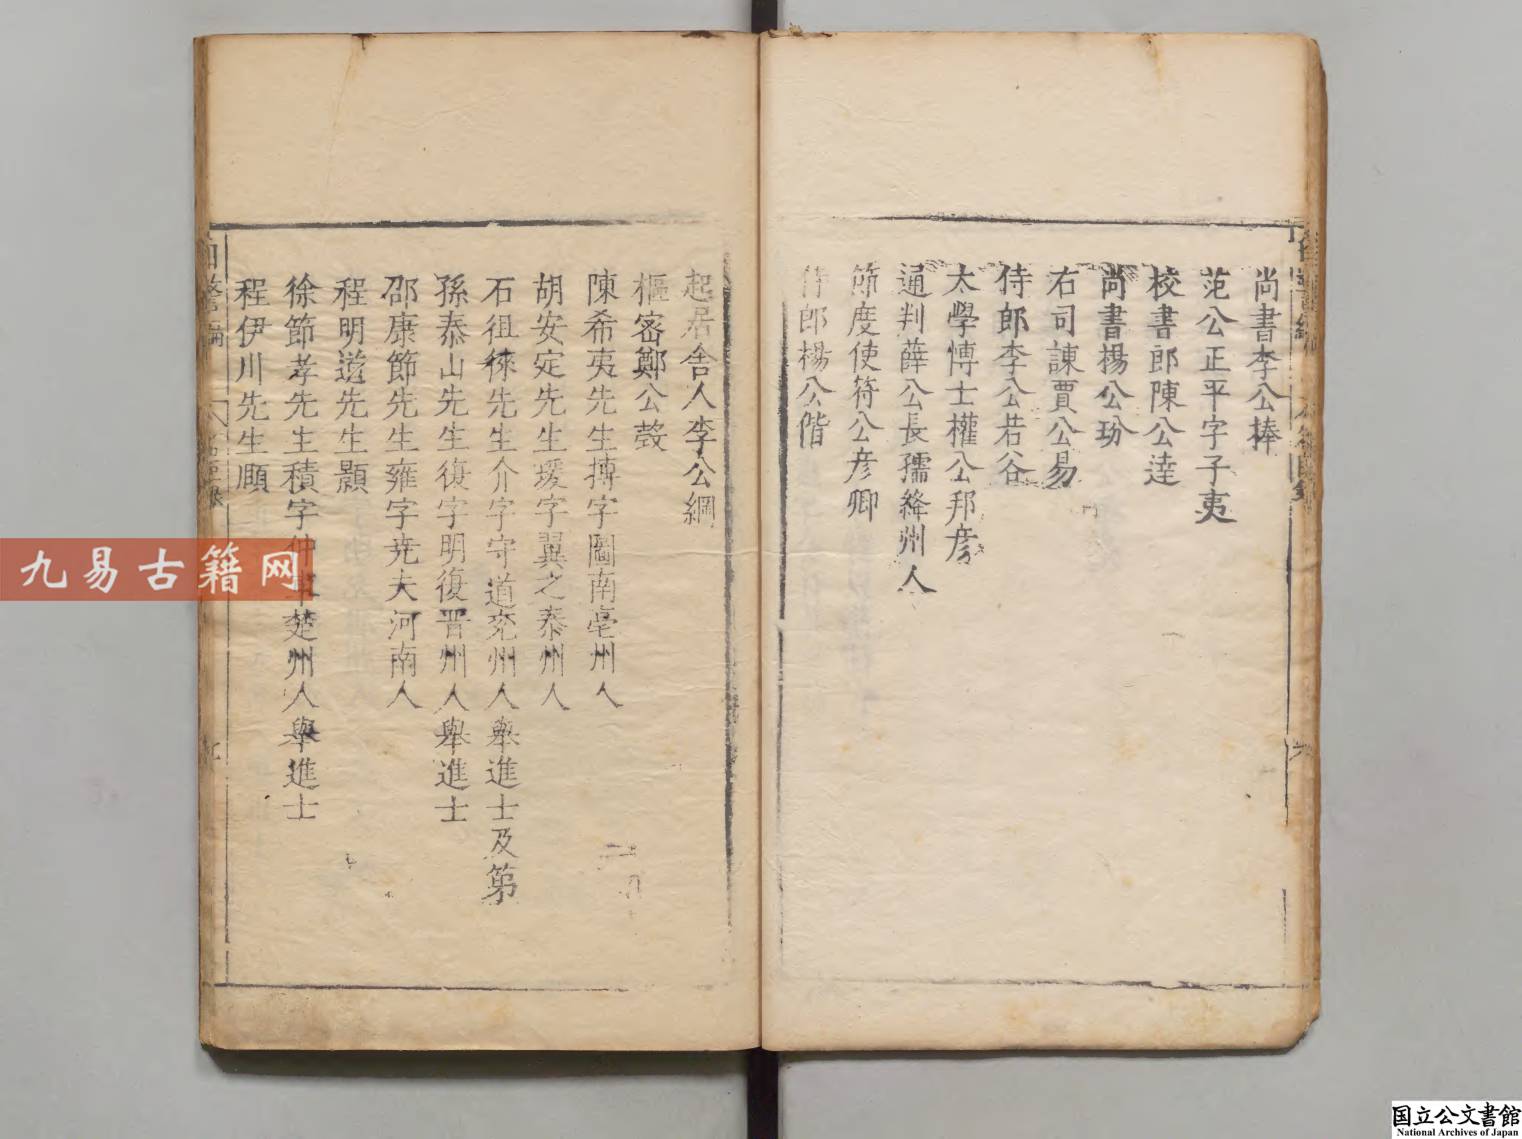 尚書李公捧
范公正平字子夷
校書郎陳公逵
尚書楊公玢
右司諫賈公易
侍郎李公若谷
太學博士權公邦彥
通判薛公長孺絳州人
節度使符公彥卿
侍郎楊公偕
起居舍人李公綱
樞密鄭公瑴
陳希夷先生摶字圖南亳州人
胡安定先生瑗字翼之泰州人
石徂徠先生介字守道兖州人舉進士及第
孫泰山先生復字明復晋州人舉進士
邵康節先生雍字尭夫河南人
程明道先生顥
徐節孝先生積字仲車楚州人舉進士
程伊川先生頥
自警編
九易古籍网
国立公文書館
National Archives of Japan